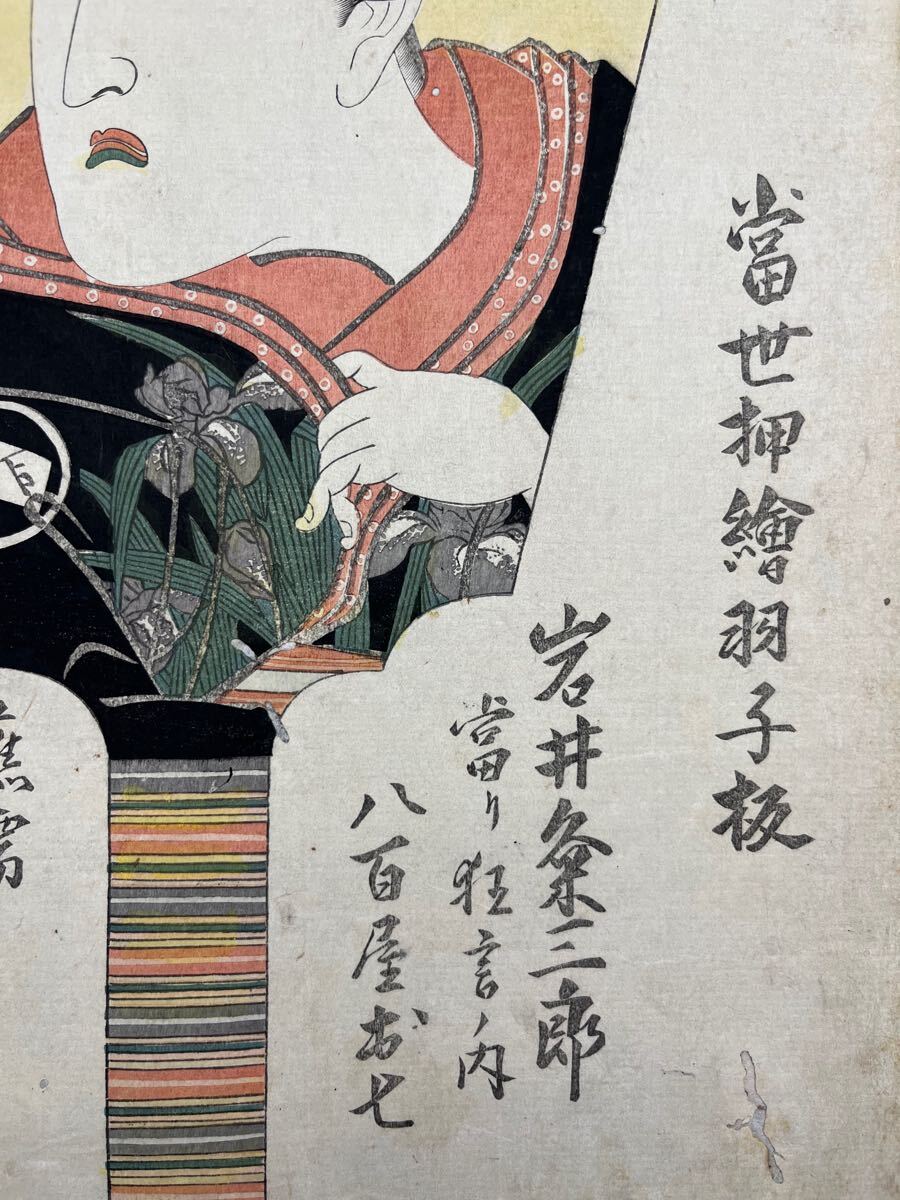 當世押繪羽子板
岩井粂三郎
當り狂言ノ内
八百屋お七
應需